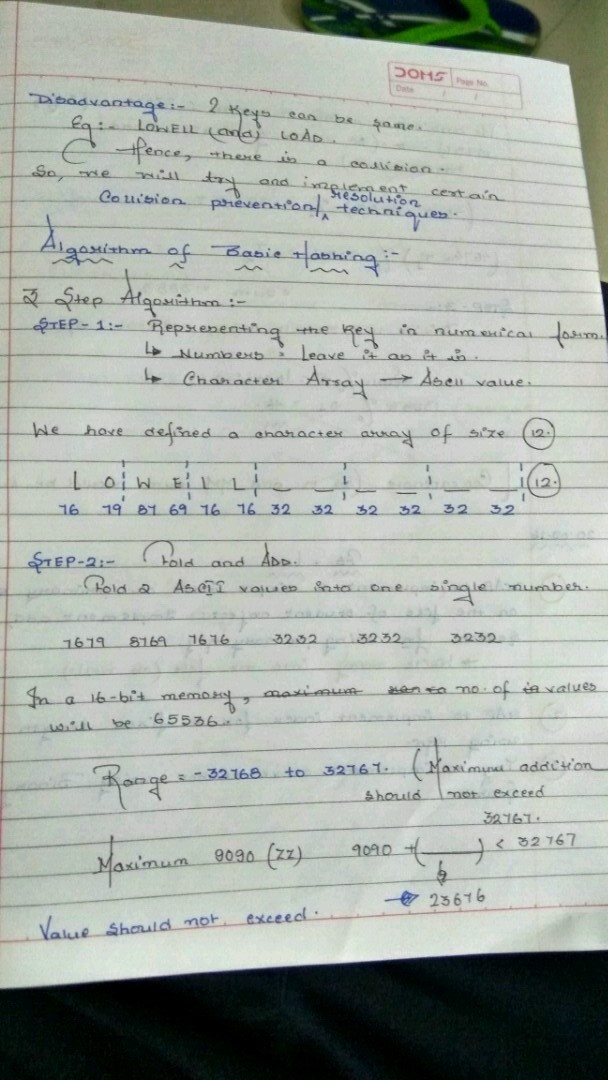 DOMS Page No.
Date / /
Disadvantage:- 2 Keys can be same.
Eg:- LOWELL (and) LOAD.
Hence, there is a collision.
So, we will try and implement certain
resolution
Collision prevention/^ techniques.
Algorithm of Basic Hashing:-
3 Step Algorithm:-
STEP-1:- Representing the key in numerical form.
↳ Numbers = Leave it as it is.
↳ Character Array → Ascii value.
We have defined a character array of size (12.)
L O W E L L _ _ _ _ _ _ (12.)
76 79 87 69 76 76 32 32 32 32 32 32
STEP-2:- Fold and ADD.
Fold 2 ASCII values into one single number.
7679 8769 7676 3232 3232 3232
In a 16-bit memory, maximum no. of values
will be 65536.
Range = -32768 to 32767. (Maximum addition
should not exceed
32767.
Maximum 9090 (ZZ) 9090 + (____) < 32767
→ 23676
Value should not exceed.